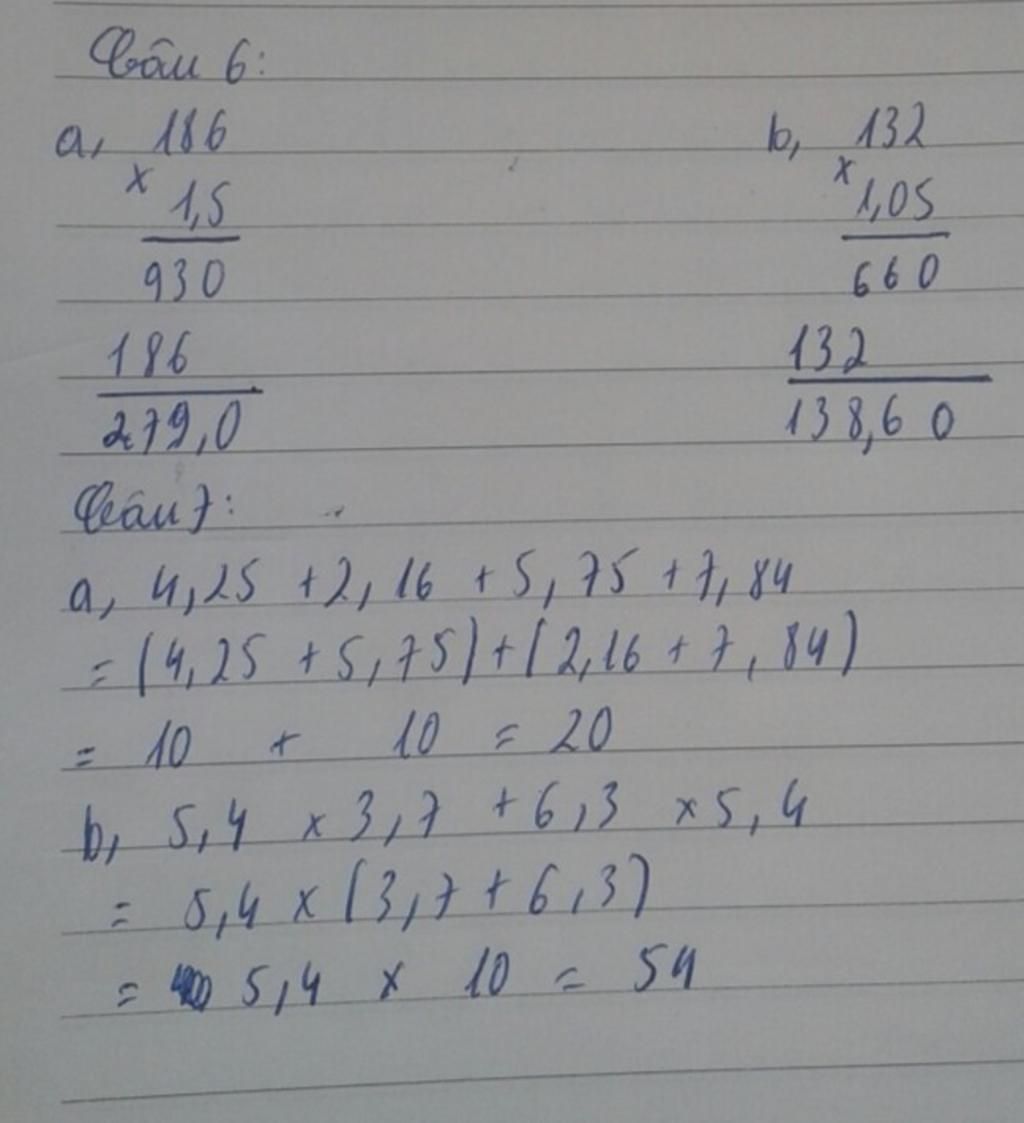 Câu 6:
a, 186
x 1,5
930
186
279,0
b, 132
x 1,05
660
132
138,60
Câu 7:
a, 4,25 + 2,16 + 5,75 + 7,84
= (4,25 + 5,75) + (2,16 + 7,84)
= 10 + 10 = 20
b, 5,4 x 3,7 + 6,3 x 5,4
= 5,4 x (3,7 + 6,3)
= 5,4 x 10 = 54